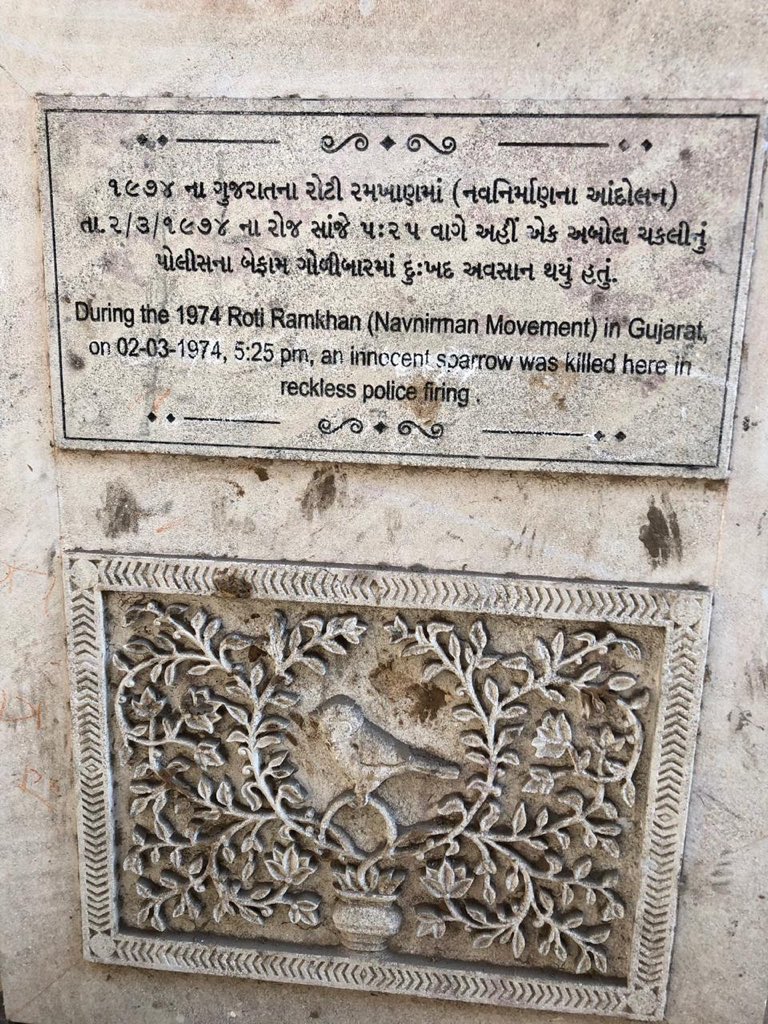 ૧૯૭૪ ના ગુજરાતના રોટી રમખાણમાં (નવનિર્માણના આંદોલન)
તા.૨/૩/૧૯૭૪ ના રોજ સાંજે ૫:૨૫ વાગે અહીં એક અબોલ ચકલીનું
પોલીસના બેફામ ગોળીબારમાં દુ:ખદ અવસાન થયું હતું.
During the 1974 Roti Ramkhan (Navnirman Movement) in Gujarat,
on 02-03-1974, 5:25 pm, an innocent sparrow was killed here in
reckless police firing .